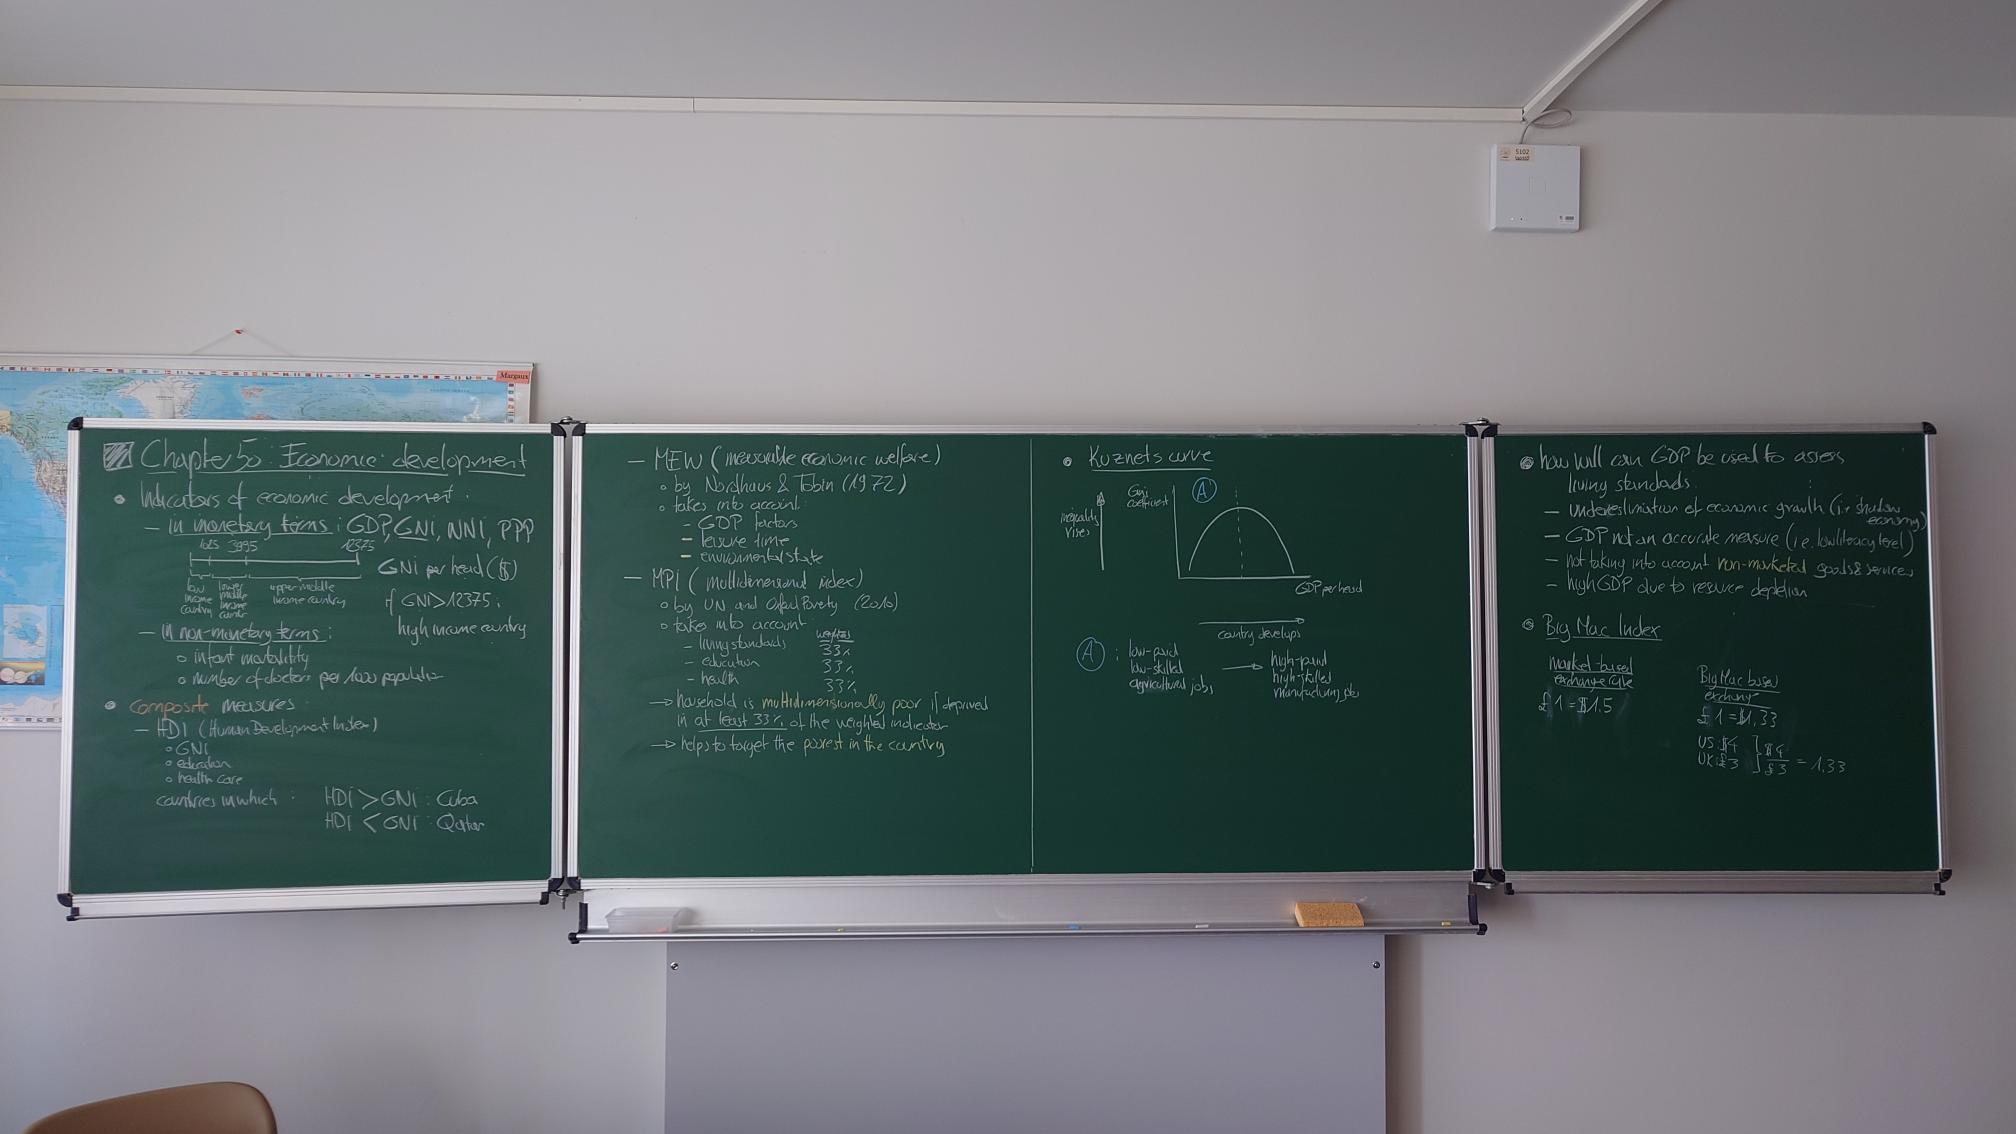 Chapter 50: Economic development
Indicators of economic development:
– in monetary terms: GDP, GNI, NNI, PPP
1025 3995 12375
GNI per head ($)
low income country
lower middle income country
upper middle income country
if GNI > 12375:
high income country
– in non-monetary terms:
infant mortability
number of doctors per 1000 population
Composite measures:
– HDI (Human Development Index)
GNI
education
health care
countries in which: HDI > GNI: Cuba
HDI < GNI: Qatar
– MEW (measurable economic welfare)
by Nordhaus & Tobin (1972)
takes into account:
– GDP factors
– leisure time
– environmental state
– MPI (multidimensional index)
by UN and Oxford Poverty (2010)
takes into account: weights
– living standards 33%
– education 33%
– health 33%
→ household is multidimensionally poor if deprived
in at least 33% of the weighted indicator
→ helps to target the poorest in the country
Kuznets curve
inequality rises
Gini coefficient
A
GDP per head
country develops
A: low-paid
low-skilled
agricultural jobs
→ high-paid
high-skilled
manufacturing jobs
how will can GDP be used to assess
living standards:
– underestimation of economic growth (i.e. shadow
economy)
– GDP not an accurate measure (i.e. low literacy level)
– not taking into account non-marketed goods & services
– high GDP due to resource depletion
Big Mac Index
market-based
exchange rate
£1 = $1.5
Big Mac based
exchange
£1 = $1,33
US: $4
UK: £3
$4
£3 = 1,33
Margaux
5102